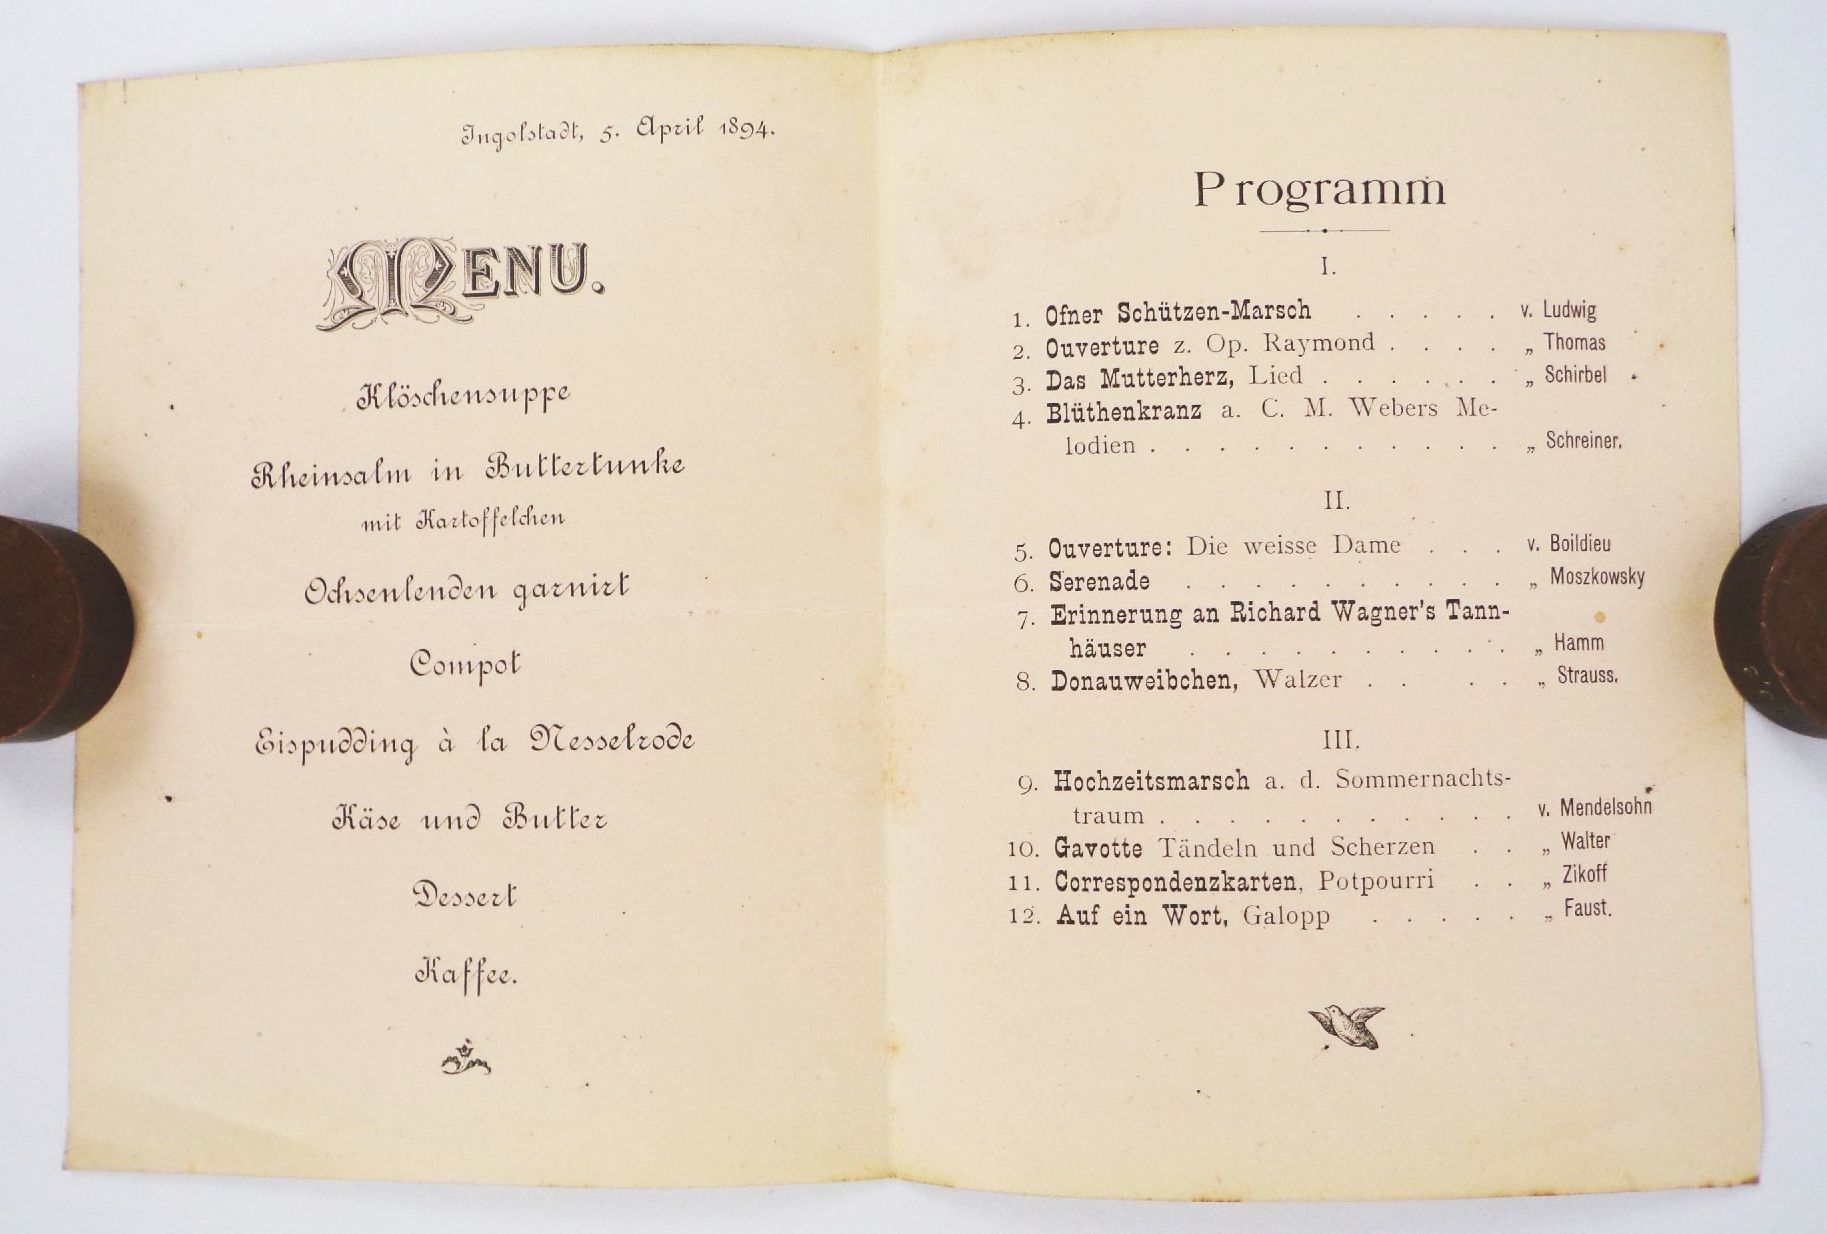 Ingolstadt, 5. April 1894.
MENU.
Klöschensuppe
Rheinsalm in Buttertunke
mit Kartoffelchen
Ochsenlenden garnirt
Compot
Eispudding à la Nesselrode
Käse und Butter
Dessert
Kaffee.
Programm
I.
1. Ofner Schützen-Marsch . . . . . v. Ludwig
2. Ouverture z. Op. Raymond . . . . „ Thomas
3. Das Mutterherz, Lied . . . . . . „ Schirbel
4. Blüthenkranz a. C. M. Webers Me-
lodien . . . . . . . . . . . „ Schreiner.
II.
5. Ouverture: Die weisse Dame . . . v. Boildieu
6. Serenade . . . . . . . . . . „ Moszkowsky
7. Erinnerung an Richard Wagner's Tann-
häuser . . . . . . . . . . „ Hamm
8. Donauweibchen, Walzer . . . . „ Strauss.
III.
9. Hochzeitsmarsch a. d. Sommernachts-
traum . . . . . . . . . . . v. Mendelsohn
10. Gavotte Tändeln und Scherzen . . „ Walter
11. Correspondenzkarten, Potpourri . . „ Zikoff
12. Auf ein Wort, Galopp . . . . . „ Faust.